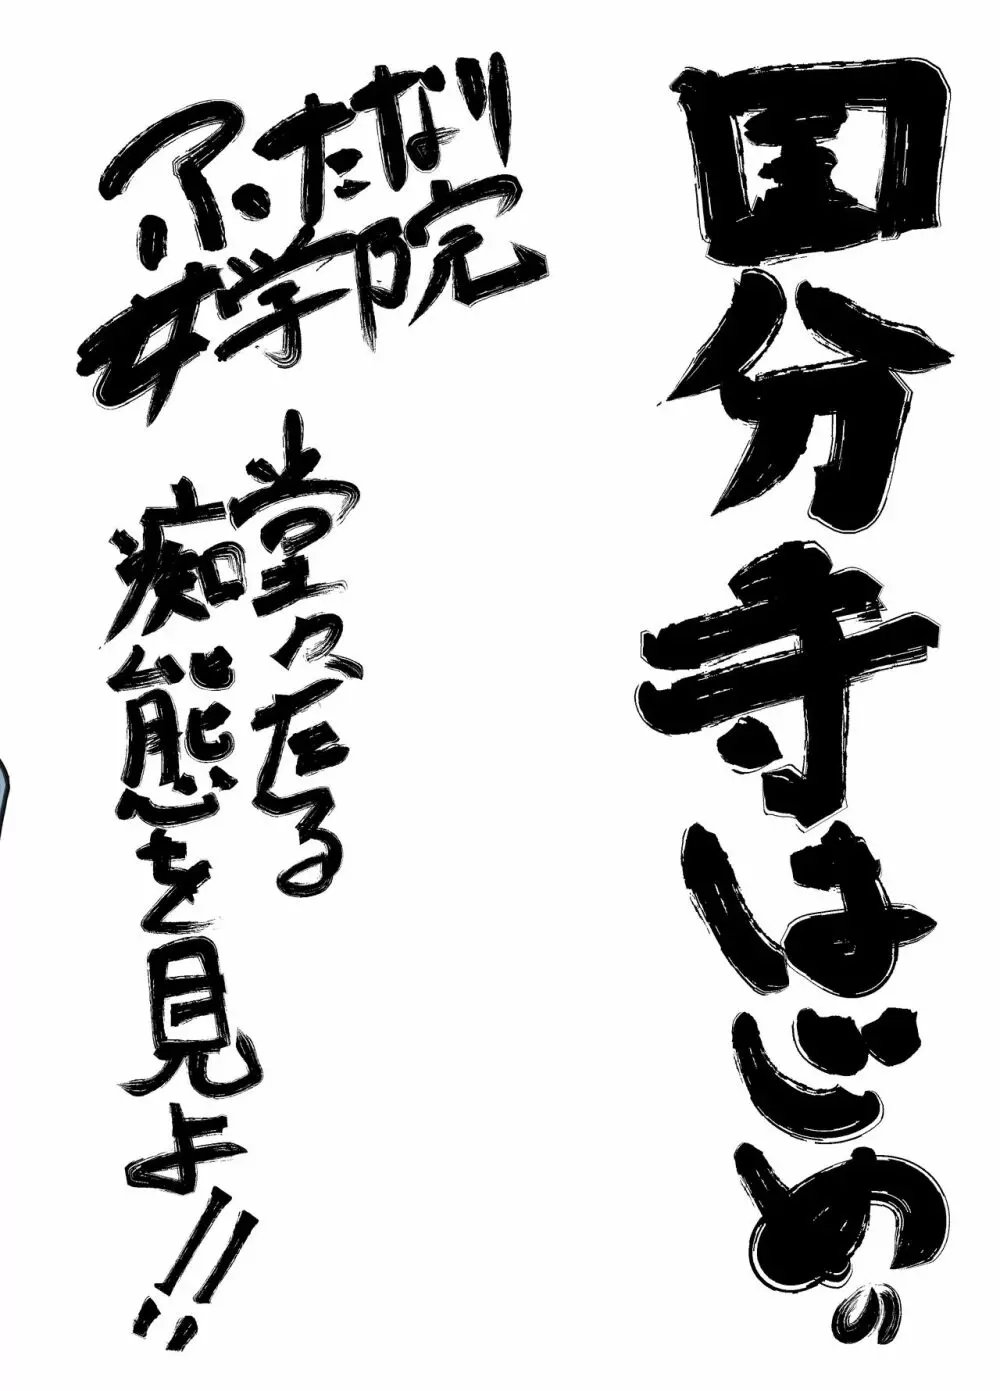 国分寺はじめの
ふたなり
女学院
堂々たる
痴態を見よ!!